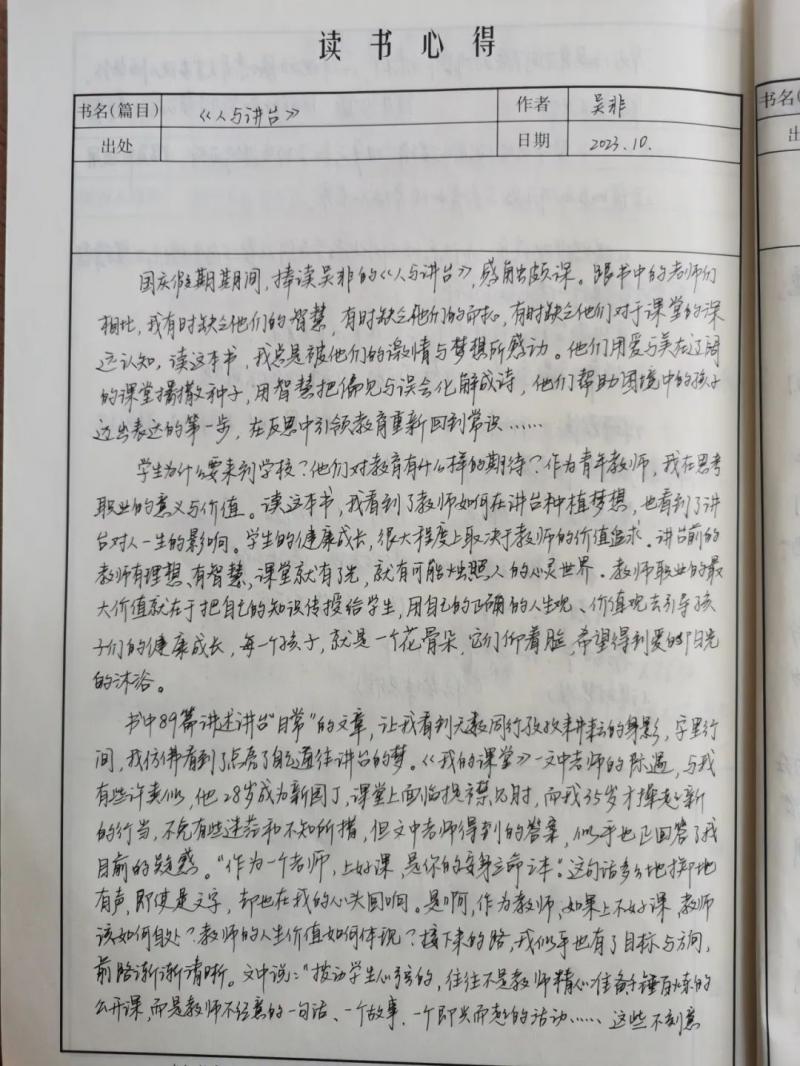 读书心得
书名(篇目) 《人与讲台》 作者 吴非
出处 日期 2023.10.
国庆假期期间，捧读吴非的《人与讲台》，感触颇深。跟书中的老师们
相比，我有时缺乏他们的智慧，有时缺乏他们的，有时缺乏他们对于课堂的深
远认知，读这本书，我总是被他们的激情与梦想所感动。他们用爱与美在辽阔
的课堂播撒种子，用智慧把偏见与误会化解成诗，他们帮助困境中的孩子
迈出表达的第一步，在反思中引领教育重新回到常识……
学生为什么要来到学校？他们对教育有什么样的期待？作为青年教师，我在思考
职业的意义与价值。读这本书，我看到了教师如何在讲台种植梦想，也看到了讲
台对人一生的影响。学生的健康成长，很大程度上取决于教师的价值追求。讲台前的
教师有理想、有智慧，课堂就有了光，就有可能烛照人的心灵世界。教师职业的最
大价值就在于把自己的知识传授给学生，用自己的正确的人生观、价值观去引导孩
子们的健康成长，每一个孩子，就是一个花骨朵，它们仰着脸，希望得到爱的阳光
的沐浴。
书中89篇讲述讲台“日常”的文章，让我看到无数同行孜孜耕耘的身影，字里行
间，我仿佛看到了点亮了自己通往讲台的梦。《我的课堂》一文中老师的际遇，与我
有些许类似，他28岁成为新园丁，课堂上面临捉襟见肘，而我35岁才操起新
的行当，不免有些迷茫和不知所措，但文中老师得到的答案，似乎也正回答了我
目前的疑惑。“作为一个老师，上好课，是你的安身立命之本”。这句话多么地掷地
有声，即使是文字，却也在我的心头回响。是啊，作为教师，如果上不好课，教师
该如何自处？教师的人生价值如何体现？接下来的路，我似乎也有了目标与方向，
前路渐渐清晰。文中说：“拨动学生心弦的，往往不是教师精心准备千锤百炼的
公开课，而是教师不经意的一句话、一个故事、一个即兴而起的活动……这些不刻意
书名(篇目)
出